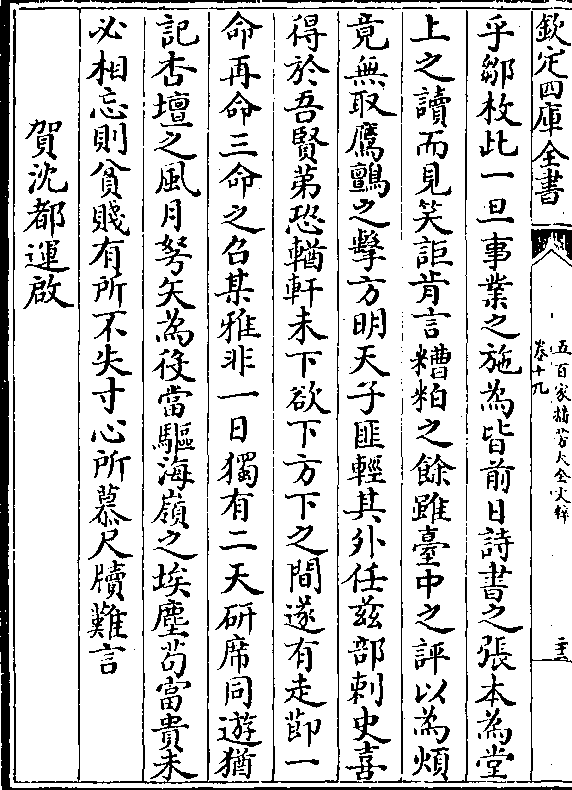 欽定四庫全書
五百家播芳大全文粹
卷十九
二十三
乎鄒枚此一旦事業之施為皆前日詩書之張本為堂
上之讀而見笑詎肯言糟粕之餘雖臺中之評以為煩
竟無取鷹鸇之擊方明天子匪輕其外任茲部刺史喜
得於吾賢第恐輶軒未下欲下方下之間遂有走節一
命再命三命之召某雅非一日獨有二天研席同遊猶
記杏壇之風月弩矢為役當驅海嶺之埃塵茍富貴未
必相忘則貧賤有所不失寸心所慕尺牘難言
賀沈都運啟